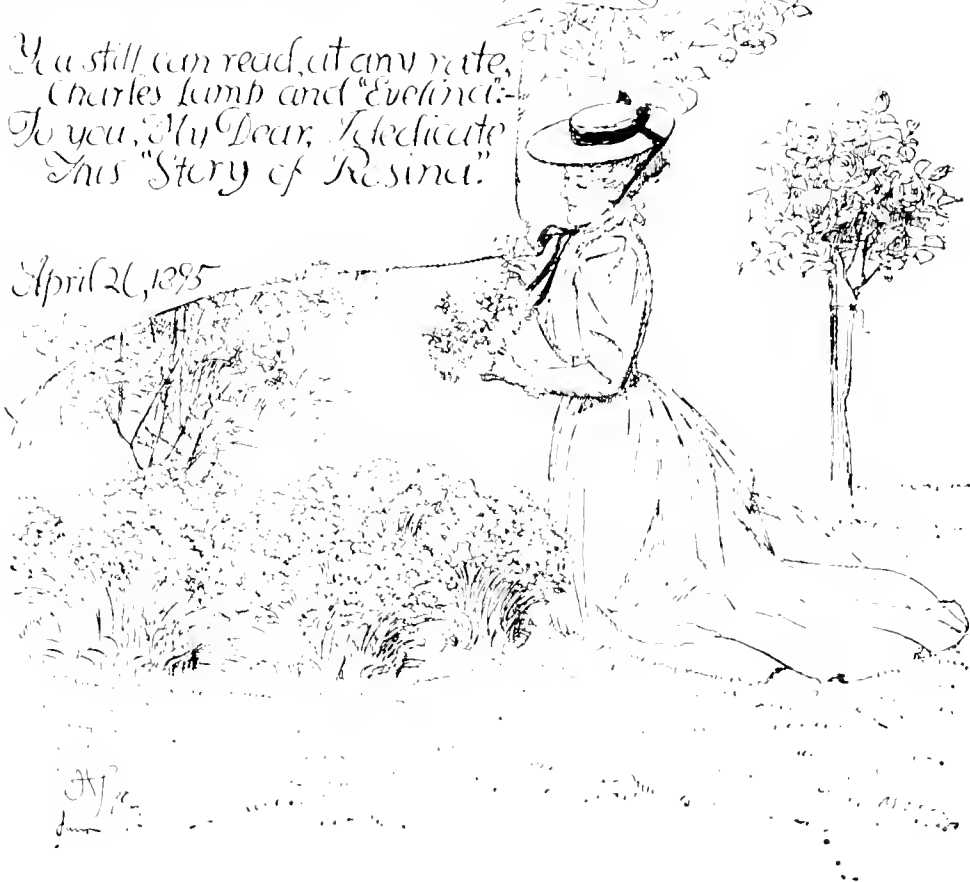 You still can read, at any rate,
Charles Lamb and "Evelina":-
To you, My Dear, I dedicate
This "Story of Rosina."
April 26, 1895